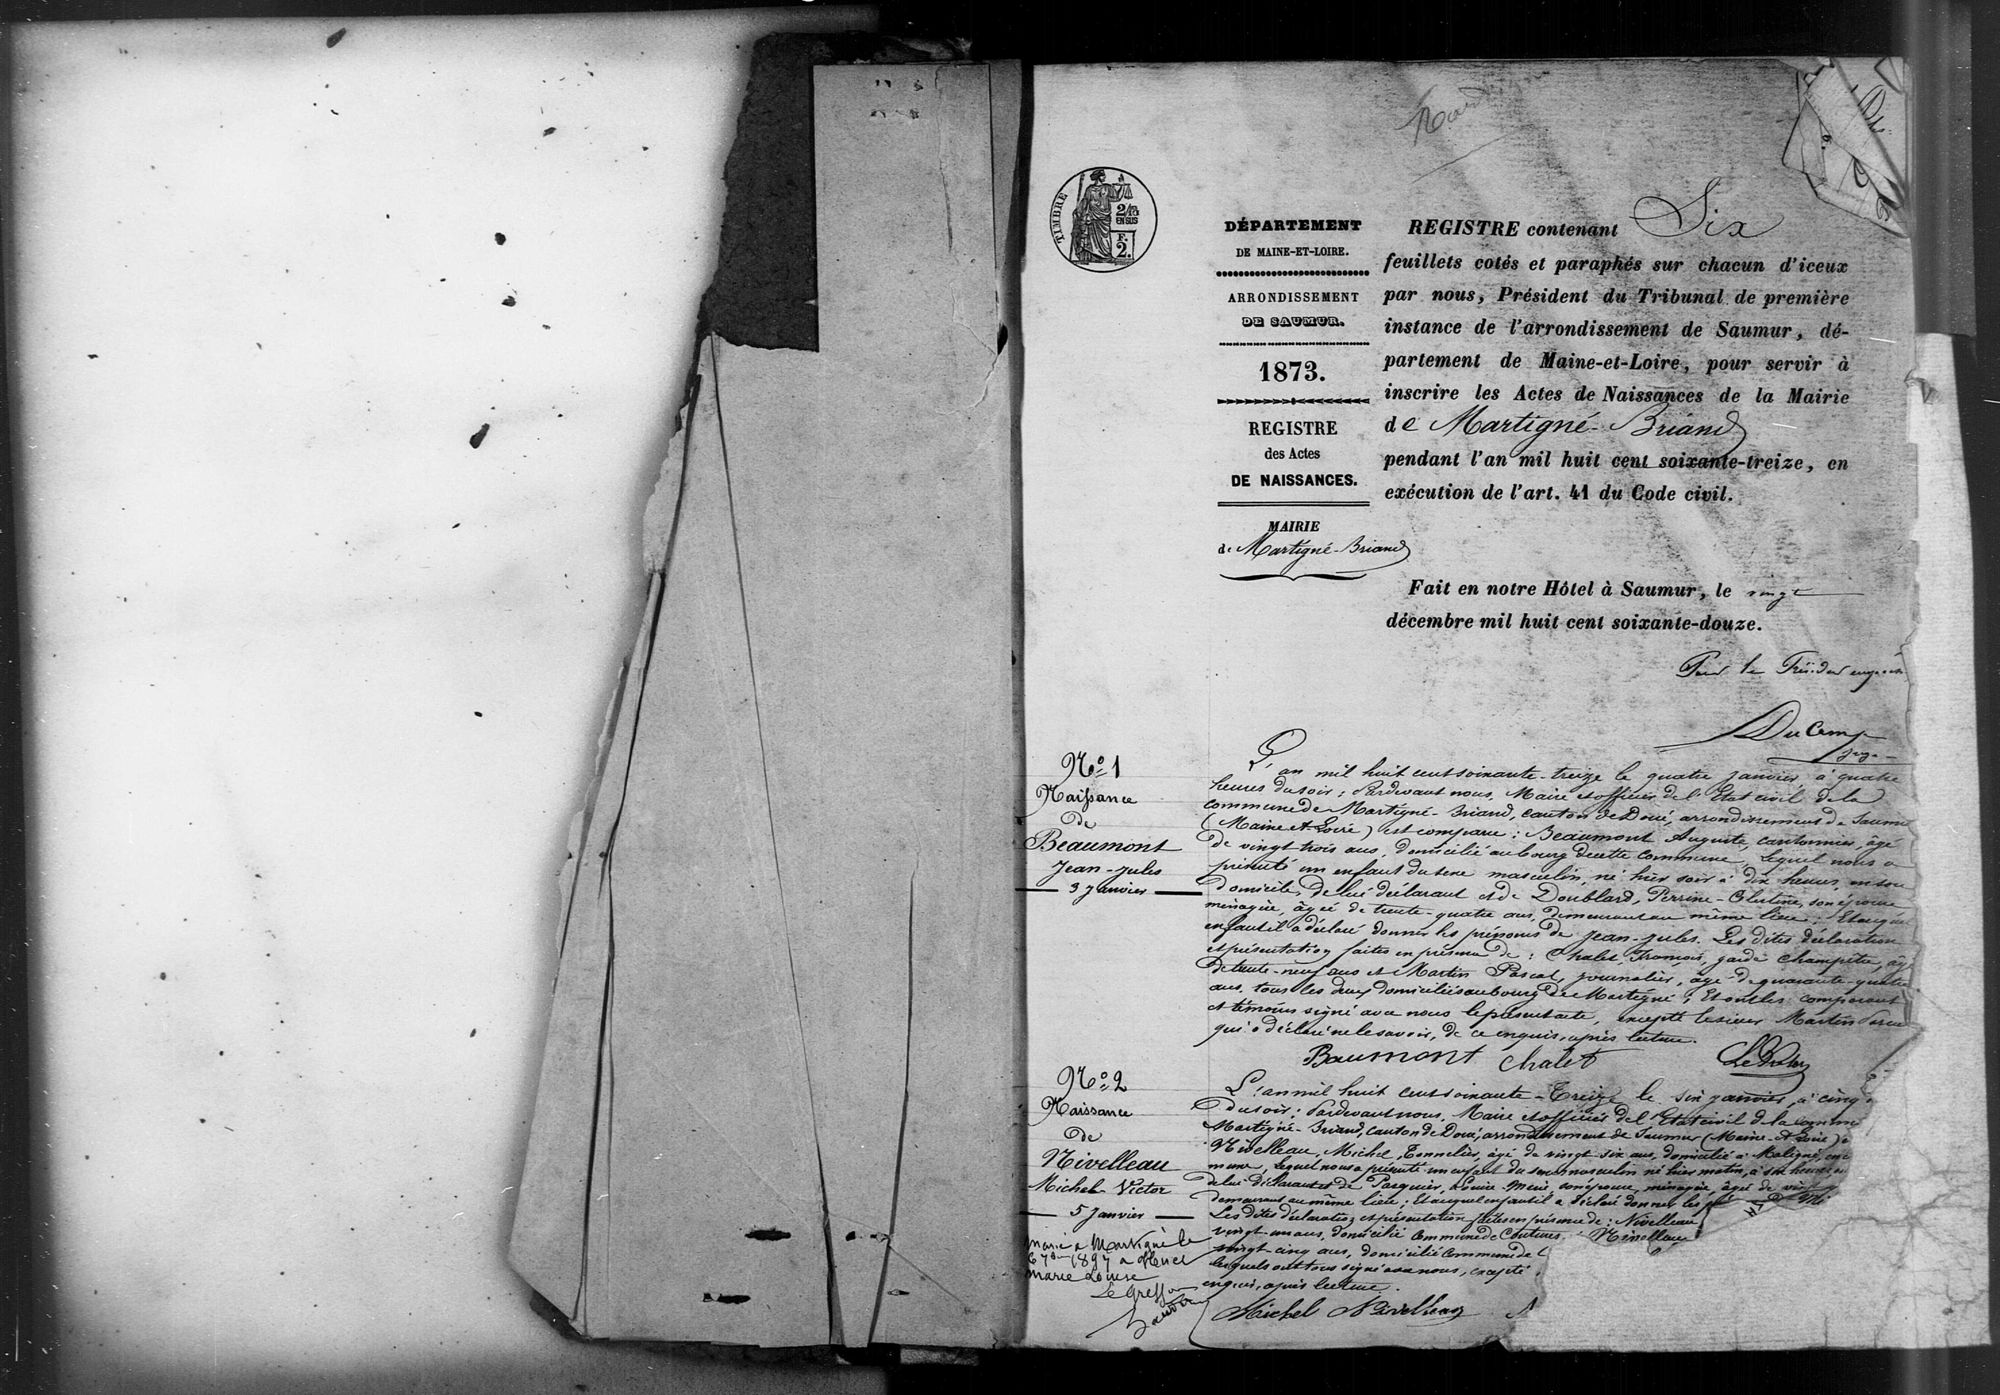 TIMBRE
2/10
EN SUS
F.
2.
DÉPARTEMENT
DE MAINE-ET-LOIRE.
ARRONDISSEMENT
DE SAUMUR.
1873.
REGISTRE
des Actes
DE NAISSANCES.
MAIRIE
de Martigné-Briand
REGISTRE contenant Six
feuillets cotés et paraphés sur chacun d'iceux
par nous, Président du Tribunal de première
instance de l'arrondissement de Saumur, dé-
partement de Maine-et-Loire, pour servir à
inscrire les Actes de Naissances de la Mairie
de Martigné-Briand
pendant l'an mil huit cent soixante-treize, en
exécution de l'art. 41 du Code civil.
Fait en notre Hôtel à Saumur, le vingt
décembre mil huit cent soixante-douze.
Pour le Président
Ducamp
juge
No 1
Naissance
de
Beaumont
Jean-Jules
3 Janvier
L'an mil huit cent soixante-treize le quatre janvier à quatre
heures du soir; Pardevant nous, Maire et officier de l'Etat civil de la
commune de Martigné-Briand, canton de Doué, arrondissement de Saumur
(Maine et Loire) est comparu: Beaumont Auguste, cantonnier, âgé
de vingt trois ans, domicilié au bourg de cette commune, lequel nous a
présenté un enfant du sexe masculin, né hier soir à dix heures, en son
domicile, de lui déclarant et de Doublard, Perrine-Clestine, son épouse
ménagère, âgée de trente-quatre ans, demeurant au même lieu; Et auquel
enfant il a déclaré donner les prénoms de Jean-Jules. Les dites déclaration
et présentation faites en présence de: Chalet, François, garde champêtre, âgé
de trente-neuf ans et Martin Pascal, journalier, âgé de quarante-quatre
ans, tous les deux domiciliés au bourg de Martigné; Et ont les comparant
et témoins signé avec nous le présent acte, excepté le sieur Martin Pascal
qui a déclaré ne le savoir, de ce enquis, après lecture.
Beaumont Chalet
No 2
Naissance
de
Nivelleau
Michel Victor
5 Janvier
marié à Martigné le
1897 a
marie Louise
Le Greffier
L'an mil huit cent soixante-Treize le six janvier, à cinq
du soir; Pardevant nous, Maire et officier de l'Etat civil de la commune
Martigné-Briand, canton de Doué, arrondissement de Saumur (Maine et Loire)
Nivelleau, Michel, Tonnelier, âgé de vingt six ans, domicilié à Maligné,
mune, lequel nous a présenté un enfant du sexe masculin né hier matin, à six heures
de lui déclarant et de Pasquier, Louise son épouse, ménagère, âgée de vingt
demeurant au même lieu; Et auquel enfant il a déclaré donner les
Les dites déclaration et présentation faites en présence de: Nivelleau
vingt-un ans, domicilié commune de Coutures, Nivelleau
vingt-cinq ans, domicilié commune de
lesquels ont tous signé avec nous, excepté
enquis, après lecture.
Michel Nivelleau